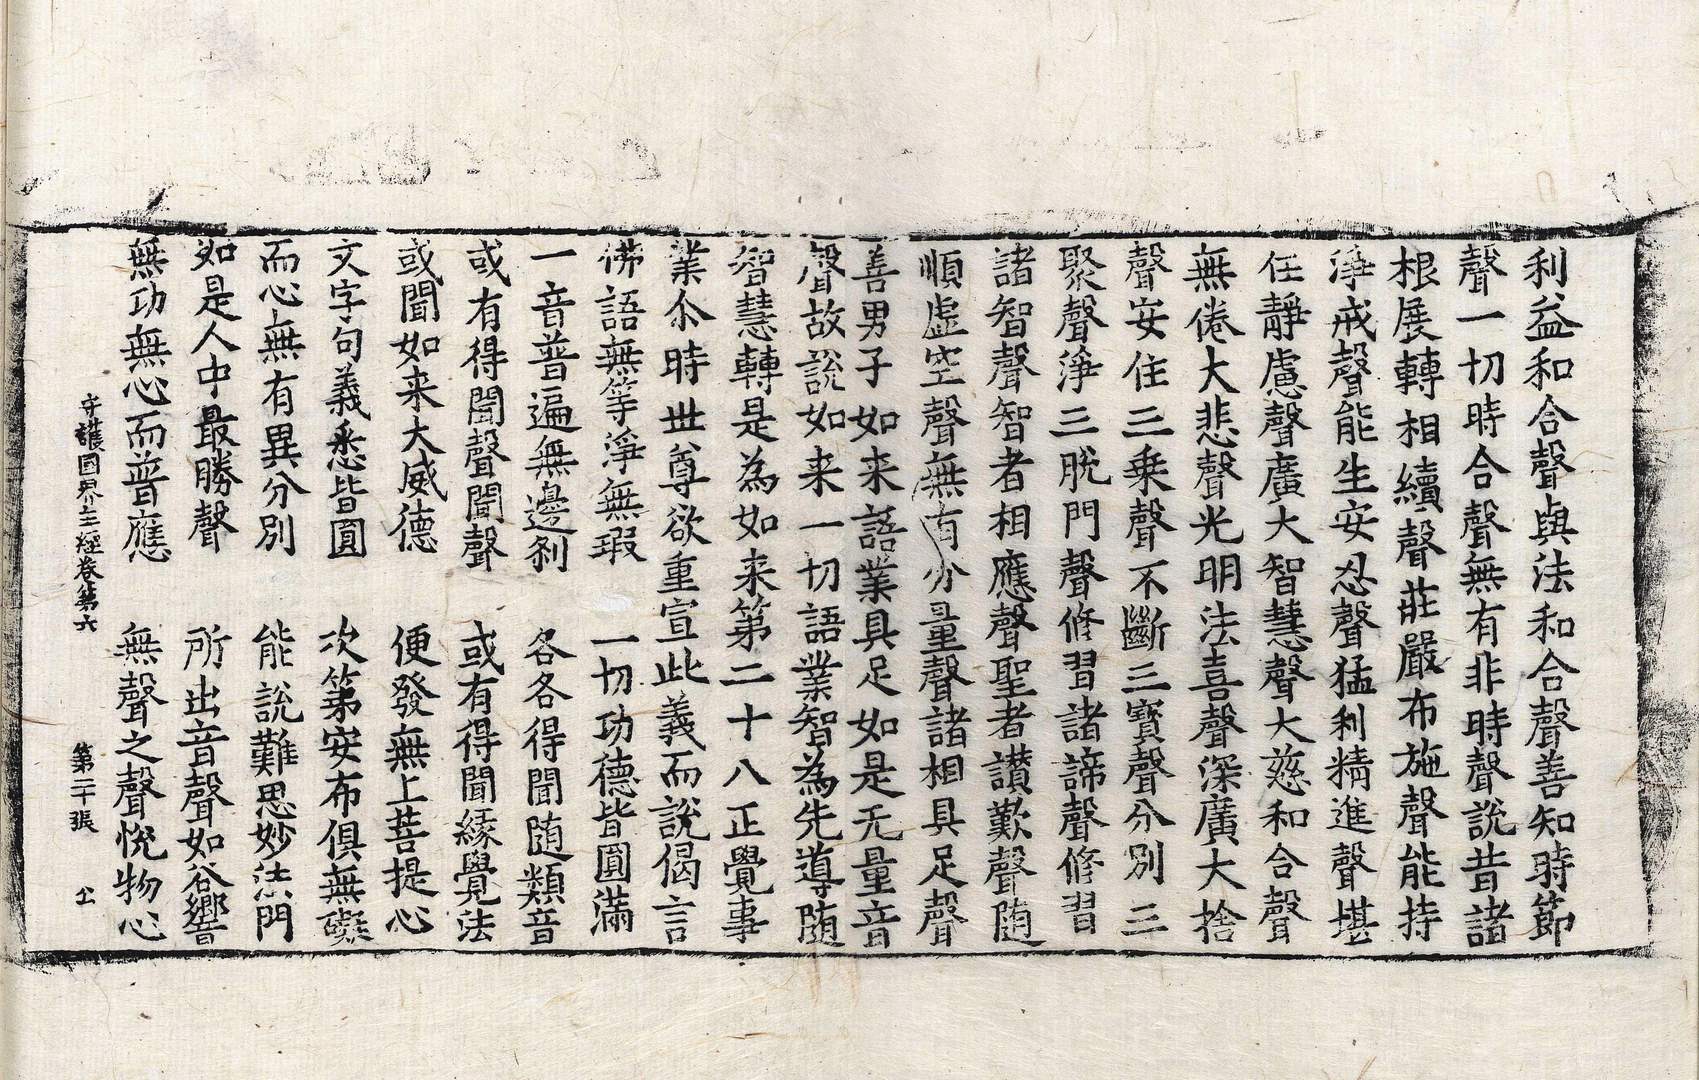 利益和合聲與法和合聲善知時節
聲一切時合聲無有非時聲說昔諸
根展轉相續聲莊嚴布施聲能持
淨戒聲能生安忍聲猛利精進聲堪
任靜慮聲廣大智慧聲大慈和合聲
無倦大悲聲光明法喜聲深廣大捨
聲安住三乘聲不斷三寶聲分別三
聚聲淨三脫門聲修習諸諦聲修習
諸智聲智者相應聲聖者讃歎聲随
順虛空聲無有分量聲諸相具足聲
善男子如来語業具足如是无量音
聲故說如来一切語業智為先導随
智慧轉是為如来第二十八正覺事
業尒時世尊欲重宣此義而說偈言
佛語無等淨無瑕　一切功德皆圓滿
一音普遍無邊刹　各各得聞随類音
或有得聞聲聞聲　或有得聞緣覺法
或聞如来大威德　便發無上菩提心
文字句義悉皆圓　次第安布俱無礙
而心無有異分別　能說難思妙法門
如是人中最勝聲　所出音聲如谷響
無功無心而普應　無聲之聲恱物心
守護國界主經卷第六　第二十張